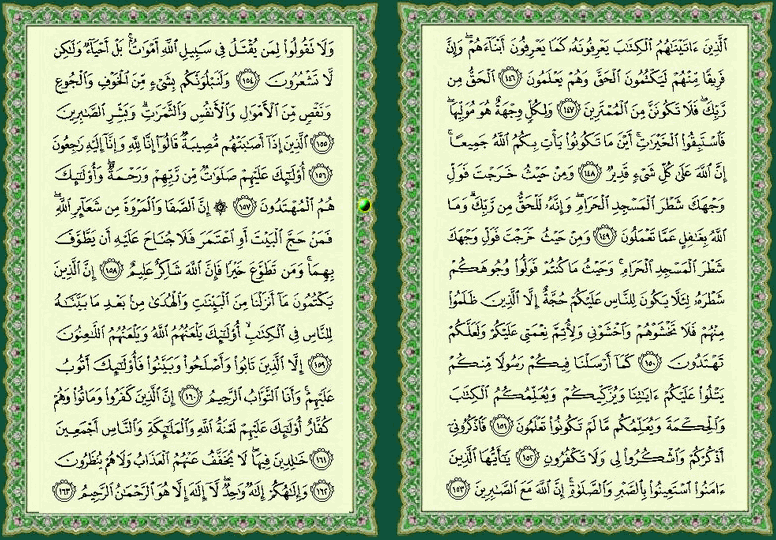 ٱلَّذِينَ ءَاتَيْنَٰهُمُ ٱلْكِتَٰبَ يَعْرِفُونَهُۥ كَمَا يَعْرِفُونَ أَبْنَآءَهُمْ ۖ وَإِنَّ
فَرِيقًا مِّنْهُمْ لَيَكْتُمُونَ ٱلْحَقَّ وَهُمْ يَعْلَمُونَ ١٤٦ ٱلْحَقُّ مِن
رَّبِّكَ ۖ فَلَا تَكُونَنَّ مِنَ ٱلْمُمْتَرِينَ ١٤٧ وَلِكُلٍّ وِجْهَةٌ هُوَ مُوَلِّيهَا ۖ
فَٱسْتَبِقُوا۟ ٱلْخَيْرَٰتِ ۚ أَيْنَ مَا تَكُونُوا۟ يَأْتِ بِكُمُ ٱللَّهُ جَمِيعًا ۚ
إِنَّ ٱللَّهَ عَلَىٰ كُلِّ شَىْءٍ قَدِيرٌ ١٤٨ وَمِنْ حَيْثُ خَرَجْتَ فَوَلِّ
وَجْهَكَ شَطْرَ ٱلْمَسْجِدِ ٱلْحَرَامِ ۖ وَإِنَّهُۥ لَلْحَقُّ مِن رَّبِّكَ ۗ وَمَا
ٱللَّهُ بِغَٰفِلٍ عَمَّا تَعْمَلُونَ ١٤٩ وَمِنْ حَيْثُ خَرَجْتَ فَوَلِّ وَجْهَكَ
شَطْرَ ٱلْمَسْجِدِ ٱلْحَرَامِ ۚ وَحَيْثُ مَا كُنتُمْ فَوَلُّوا۟ وُجُوهَكُمْ
شَطْرَهُۥ لِئَلَّا يَكُونَ لِلنَّاسِ عَلَيْكُمْ حُجَّةٌ إِلَّا ٱلَّذِينَ ظَلَمُوا۟
مِنْهُمْ فَلَا تَخْشَوْهُمْ وَٱخْشَوْنِى وَلِأُتِمَّ نِعْمَتِى عَلَيْكُمْ وَلَعَلَّكُمْ
تَهْتَدُونَ ١٥٠ كَمَآ أَرْسَلْنَا فِيكُمْ رَسُولًا مِّنكُمْ
يَتْلُوا۟ عَلَيْكُمْ ءَايَٰتِنَا وَيُزَكِّيكُمْ وَيُعَلِّمُكُمُ ٱلْكِتَٰبَ
وَٱلْحِكْمَةَ وَيُعَلِّمُكُم مَّا لَمْ تَكُونُوا۟ تَعْلَمُونَ ١٥١ فَٱذْكُرُونِىٓ
أَذْكُرْكُمْ وَٱشْكُرُوا۟ لِى وَلَا تَكْفُرُونِ ١٥٢ يَٰٓأَيُّهَا ٱلَّذِينَ
ءَامَنُوا۟ ٱسْتَعِينُوا۟ بِٱلصَّبْرِ وَٱلصَّلَوٰةِ ۚ إِنَّ ٱللَّهَ مَعَ ٱلصَّٰبِرِينَ ١٥٣
وَلَا تَقُولُوا۟ لِمَن يُقْتَلُ فِى سَبِيلِ ٱللَّهِ أَمْوَٰتٌۢ ۚ بَلْ أَحْيَآءٌ وَلَٰكِن
لَّا تَشْعُرُونَ ١٥٤ وَلَنَبْلُوَنَّكُم بِشَىْءٍ مِّنَ ٱلْخَوْفِ وَٱلْجُوعِ
وَنَقْصٍ مِّنَ ٱلْأَمْوَٰلِ وَٱلْأَنفُسِ وَٱلثَّمَرَٰتِ ۗ وَبَشِّرِ ٱلصَّٰبِرِينَ
١٥٥ ٱلَّذِينَ إِذَآ أَصَٰبَتْهُم مُّصِيبَةٌ قَالُوٓا۟ إِنَّا لِلَّهِ وَإِنَّآ إِلَيْهِ رَٰجِعُونَ
١٥٦ أُو۟لَٰٓئِكَ عَلَيْهِمْ صَلَوَٰتٌ مِّن رَّبِّهِمْ وَرَحْمَةٌ ۖ وَأُو۟لَٰٓئِكَ
هُمُ ٱلْمُهْتَدُونَ ١٥٧ ۞ إِنَّ ٱلصَّفَا وَٱلْمَرْوَةَ مِن شَعَآئِرِ ٱللَّهِ ۖ
فَمَنْ حَجَّ ٱلْبَيْتَ أَوِ ٱعْتَمَرَ فَلَا جُنَاحَ عَلَيْهِ أَن يَطَّوَّفَ
بِهِمَا ۚ وَمَن تَطَوَّعَ خَيْرًا فَإِنَّ ٱللَّهَ شَاكِرٌ عَلِيمٌ ١٥٨ إِنَّ ٱلَّذِينَ
يَكْتُمُونَ مَآ أَنزَلْنَا مِنَ ٱلْبَيِّنَٰتِ وَٱلْهُدَىٰ مِنۢ بَعْدِ مَا بَيَّنَّٰهُ
لِلنَّاسِ فِى ٱلْكِتَٰبِ ۙ أُو۟لَٰٓئِكَ يَلْعَنُهُمُ ٱللَّهُ وَيَلْعَنُهُمُ ٱللَّٰعِنُونَ
١٥٩ إِلَّا ٱلَّذِينَ تَابُوا۟ وَأَصْلَحُوا۟ وَبَيَّنُوا۟ فَأُو۟لَٰٓئِكَ أَتُوبُ
عَلَيْهِمْ ۚ وَأَنَا ٱلتَّوَّابُ ٱلرَّحِيمُ ١٦٠ إِنَّ ٱلَّذِينَ كَفَرُوا۟ وَمَاتُوا۟ وَهُمْ
كُفَّارٌ أُو۟لَٰٓئِكَ عَلَيْهِمْ لَعْنَةُ ٱللَّهِ وَٱلْمَلَٰٓئِكَةِ وَٱلنَّاسِ أَجْمَعِينَ
١٦١ خَٰلِدِينَ فِيهَا ۖ لَا يُخَفَّفُ عَنْهُمُ ٱلْعَذَابُ وَلَا هُمْ يُنظَرُونَ
١٦٢ وَإِلَٰهُكُمْ إِلَٰهٌ وَٰحِدٌ ۖ لَّآ إِلَٰهَ إِلَّا هُوَ ٱلرَّحْمَٰنُ ٱلرَّحِيمُ ١٦٣